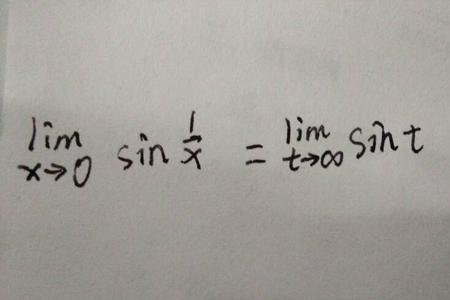 lim x→0 sin 1/x = lim t→∞ sin t